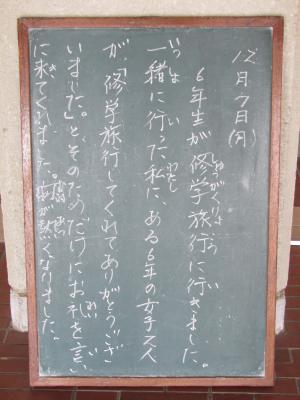 12月7日(月)
6年生が修学旅行に行きました。
一緒に行った私に、ある6年の女子2人
が、「修学旅行してくれてありがとうござ
いました。」と、そのためだけにお礼を言い
に来てくれました。胸が熱くなりました。